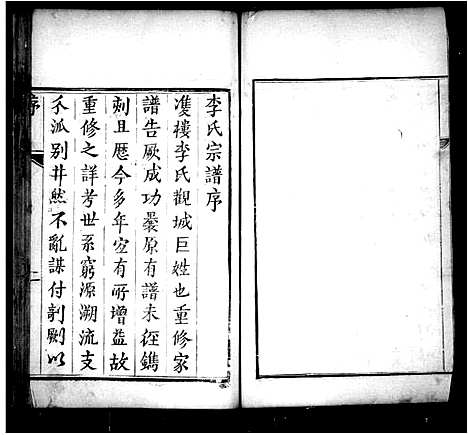 李氏宗譜序
雙樓李氏觀城巨姓也重修家
譜告厥成功曩原有譜未經鐫
刻且歷今多年宜有所增益故
重修之詳考世系窮源溯流支
分派別井然不亂謀付剞劂以
序